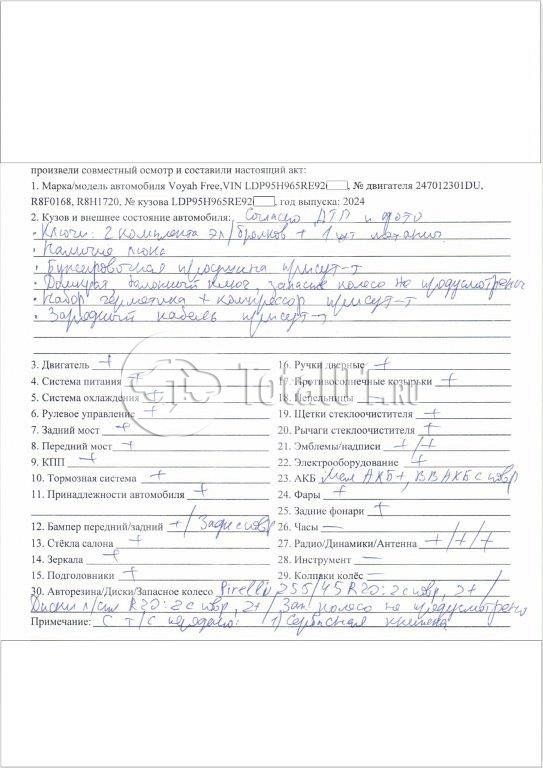 произвели совместный осмотр и составили настоящий акт:
1. Марка/модель автомобиля Voyah Free,VIN LDP95H965RE92 , № двигателя 247012301DU,
R8F0168, R8H1720, № кузова LDP95H965RE92 , год выпуска: 2024
2. Кузов и внешнее состояние автомобиля: Согласно ДТП и фото
• Ключи: 2 комплекта эл/брелков + 1 шт механич.
• Наличие люка
• Буксировочная проушина присут-т
• Домкрат, балонный ключ, запасное колесо не предусмотрены
• Набор герметика + компрессор присут-т
• Зарядный кабель присут-т
3. Двигатель +
4. Система питания +
5. Система охлаждения +
6. Рулевое управление +
7. Задний мост +
8. Передний мост +
9. КПП +
10. Тормозная система +
11. Принадлежности автомобиля +
12. Бампер передний/задний +/ Задн с повр
13. Стёкла салона +
14. Зеркала +
15. Подголовники +
16. Ручки дверные +
17. Противосолнечные козырьки +
18. Пепельницы —
19. Щетки стеклоочистителя +
20. Рычаги стеклоочистителя +
21. Эмблемы/надписи +/+
22. Электрооборудование +
23. АКБ АКБ+, ВВ АКБ с повр
24. Фары +
25. Задние фонари +
26. Часы —
27. Радио/Динамики/Антенна +/+/+
28. Инструмент —
29. Колпаки колёс —
30. Авторезина/Диски/Запасное колесо Pirelli 255/45 R20: 2 с повр, 2+ /
Диски R20: 2 с повр, 2+ / Зап. колесо не предусмотрено
Примечание: С Т/С передано: 1) Сервисная книжка
Total01.ru